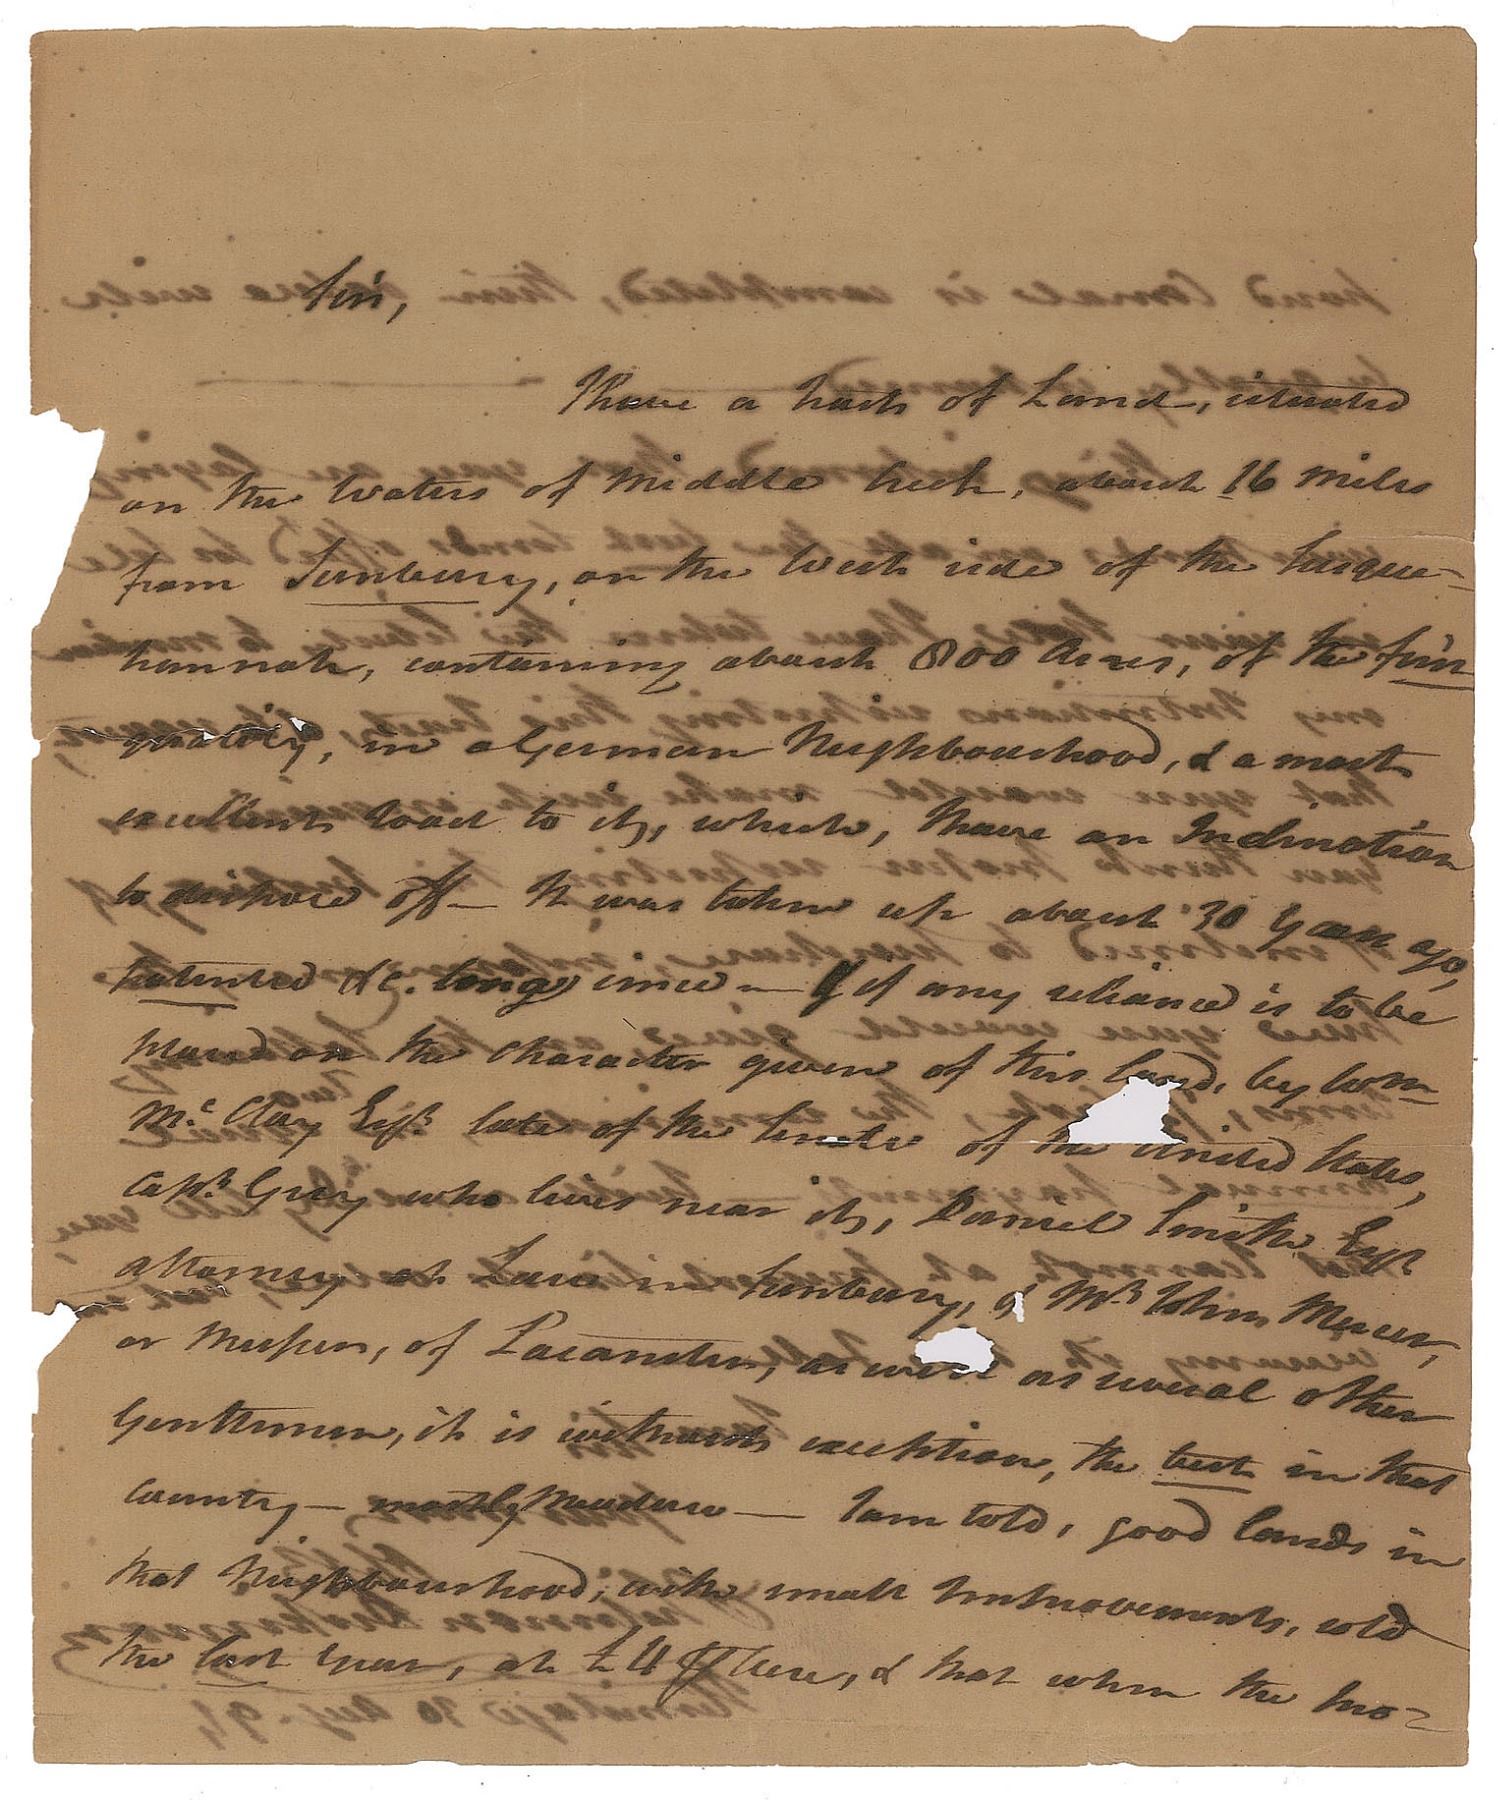 Sir,
I have a tract of Land, situated
on the Waters of Middle Creek, about 16 miles
from Sunbury, on the West side of the Susque-
hannah, containing about 800 Acres, of the first
quality, in a German Neighbourhood, & a most
excellent Road to it, which, I have an Inclination
to dispose off — It was taken up about 30 years ago,
patented &c. long since — If any reliance is to be
placed on the Character given of this land, by Wm
McClay Esqr. late of the Senate of the United States,
Capt. Gray who lives near it, Daniel Smith Esqr.
Attorney at Law in Sunbury, & Mr. John Mercer,
or Messer, of Lancaster, as well as several other
Gentlemen, it is without exception, the best in that
country — mostly Meadow — I am told, good lands in
that Neighbourhood, with small Improvements, sold
the last Year, at £4 ⅌ Acre, & that when the pro-